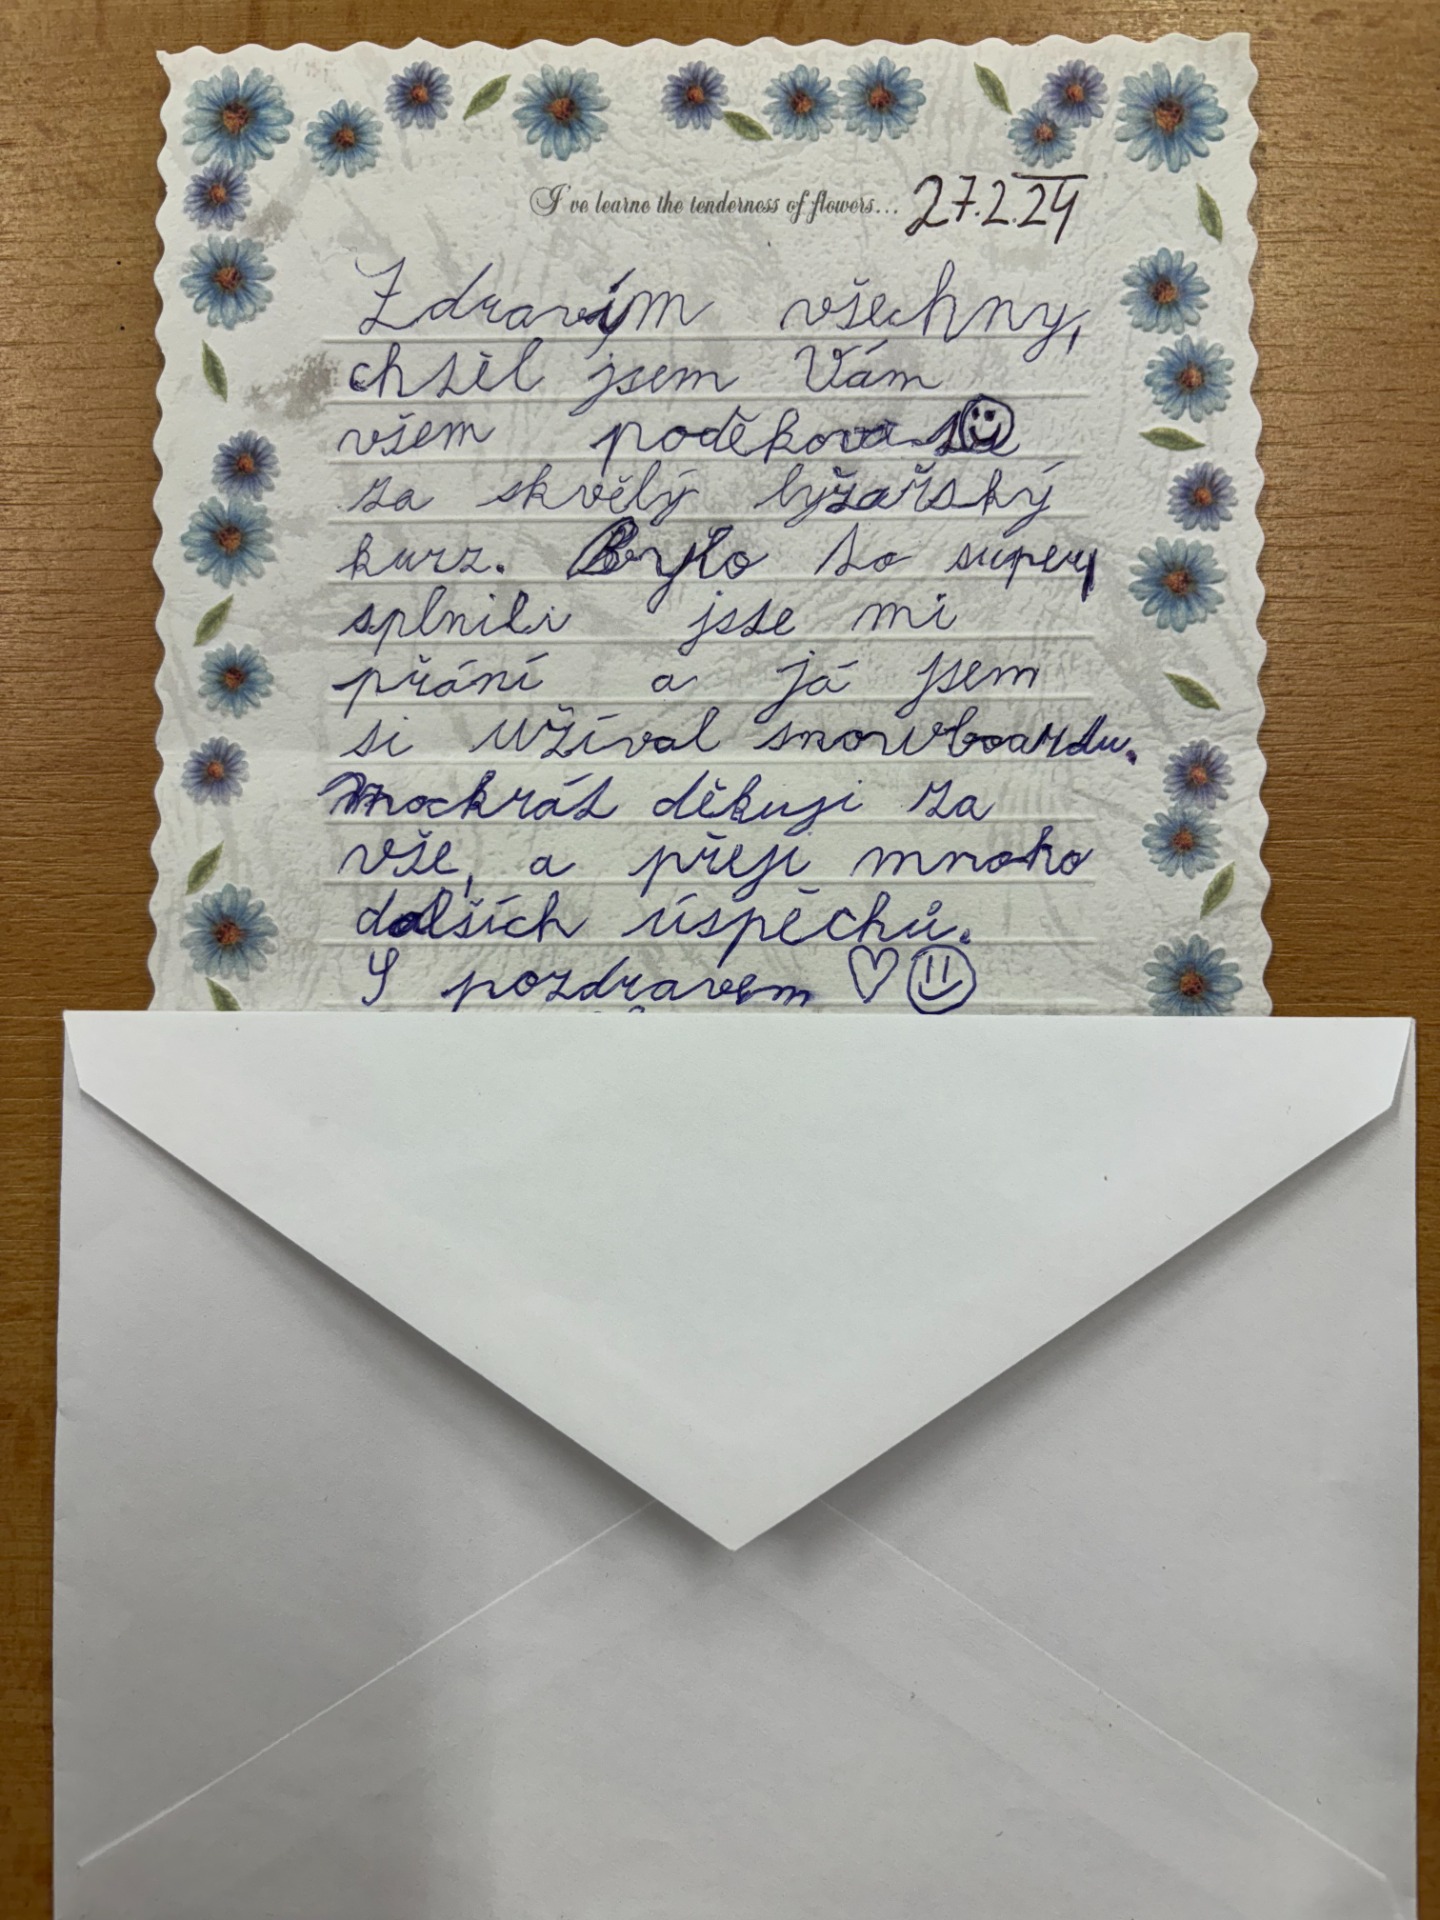 I've learne the tenderness of flowers... 27.2.24
Zdravím všechny,
chtěl jsem Vám
všem poděkovat
za skvělý lyžařský
kurz. Bylo to super,
splnili jste mi
přání a já jsem
si užíval snowboardu.
Mockrát děkuji za
vše, a přeji mnoho
dalších úspěchů.
S pozdravem